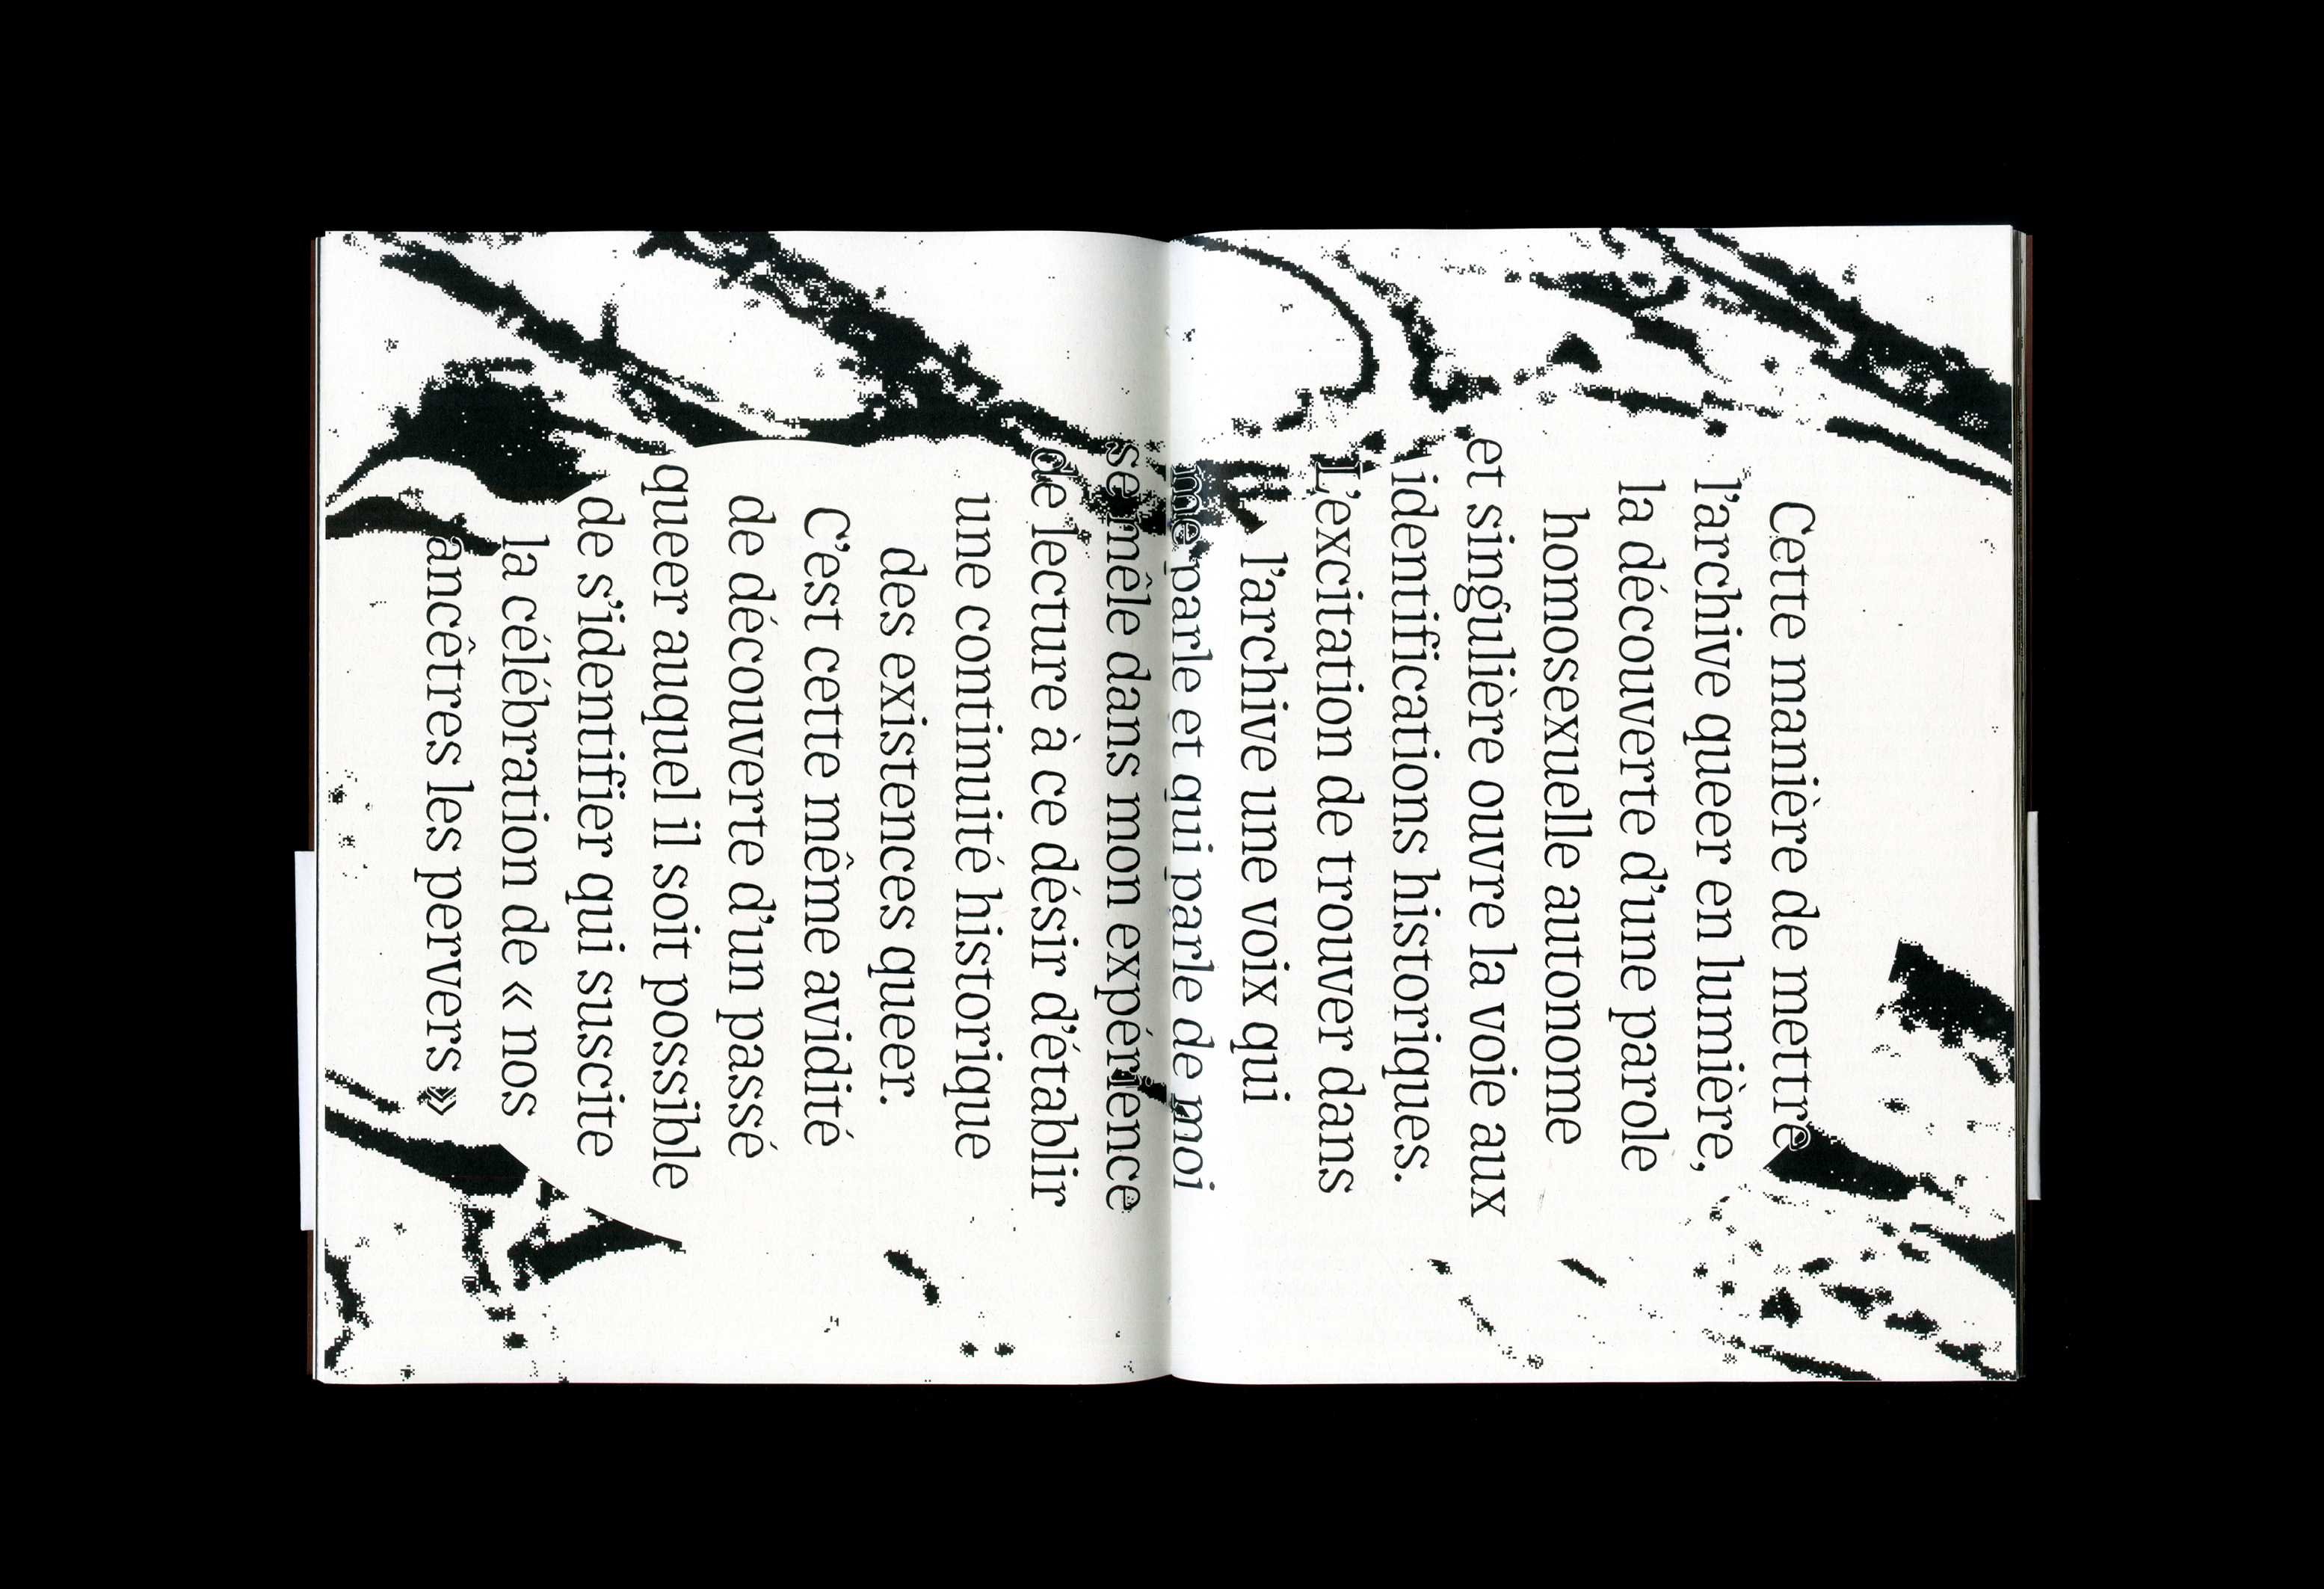 Cette manière de mettre
l’archive queer en lumière,
la découverte d’une parole
homosexuelle autonome
et singulière ouvre la voie aux
identifications historiques.
L’excitation de trouver dans
l’archive une voix qui
me parle et qui parle de moi
se mêle dans mon expérience
de lecture à ce désir d’établir
une continuité historique
des existences queer.
C’est cette même avidité
de découverte d’un passé
queer auquel il soit possible
de s’identifier qui suscite
la célébration de « nos
ancêtres les pervers »